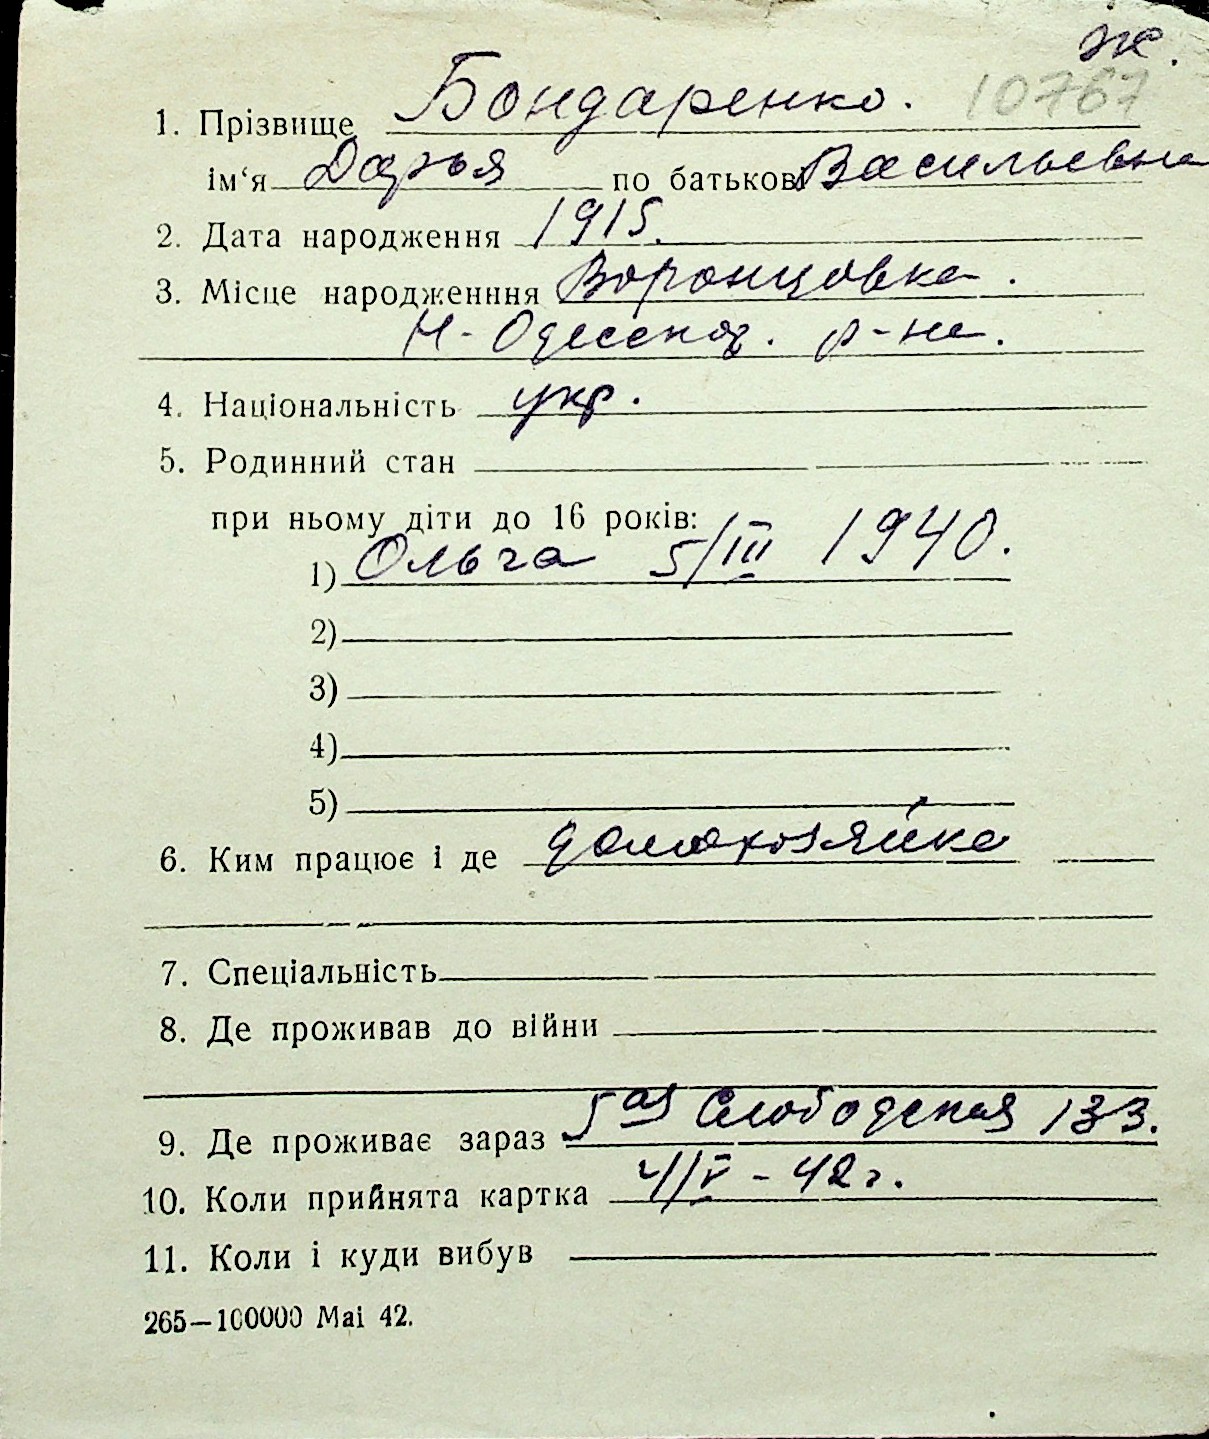 ж.
10767
1. Прізвище Бондаренко.
ім‘я Дарья по батькові Васильевна
2. Дата народження 1915.
3. Місце народженння Воронцовка.
Н-Одесског. р-на.
4. Національність укр.
5. Родинний стан
при ньому діти до 16 років:
1) Ольга 5/III 1940.
2)
3)
4)
5)
6. Ким працює і де домохозяйка
7. Спеціальність
8. Де проживав до війни
9. Де проживає зараз 5ая Слободская 133.
10. Коли прийнята картка 4/V - 42 г.
11. Коли і куди вибув
265—100000 Маі 42.